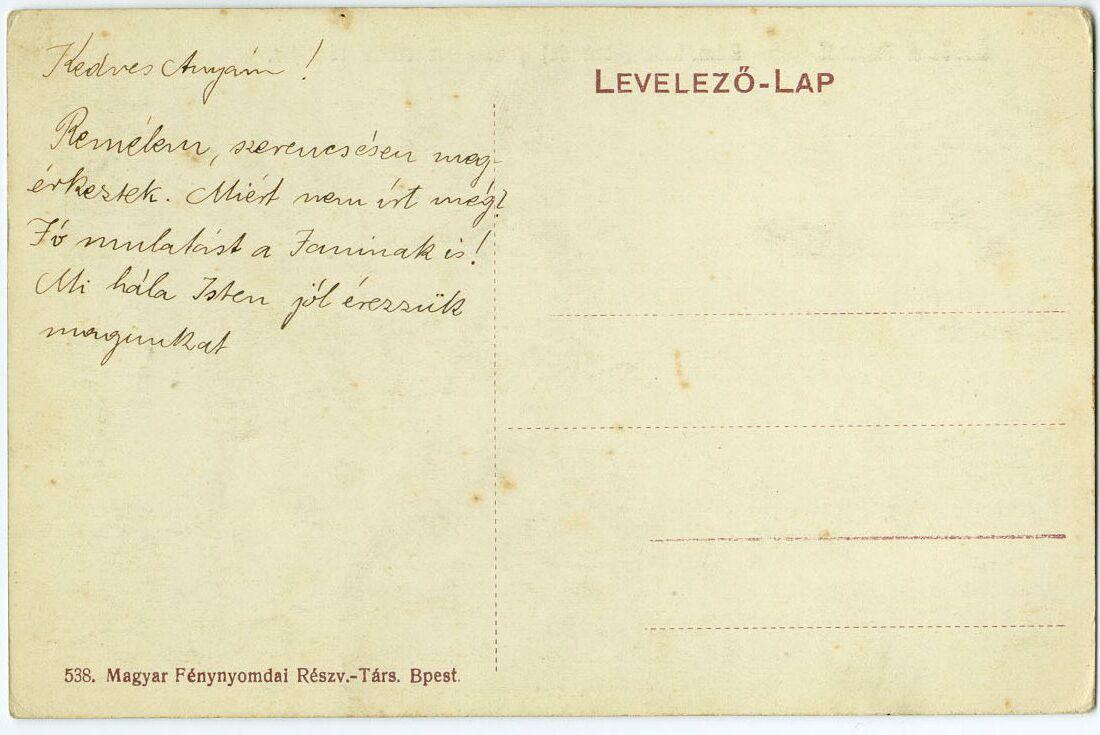 Kedves Anyám!
LEVELEZŐ-LAP
Remélem, szerencsésen meg-
érkeztek. Miért nem írt még?
Jó mulatást a Janinak is!
Mi hála Isten jól érezzük
magunkat
538. Magyar Fénynyomdai Részv.-Társ. Bpest.